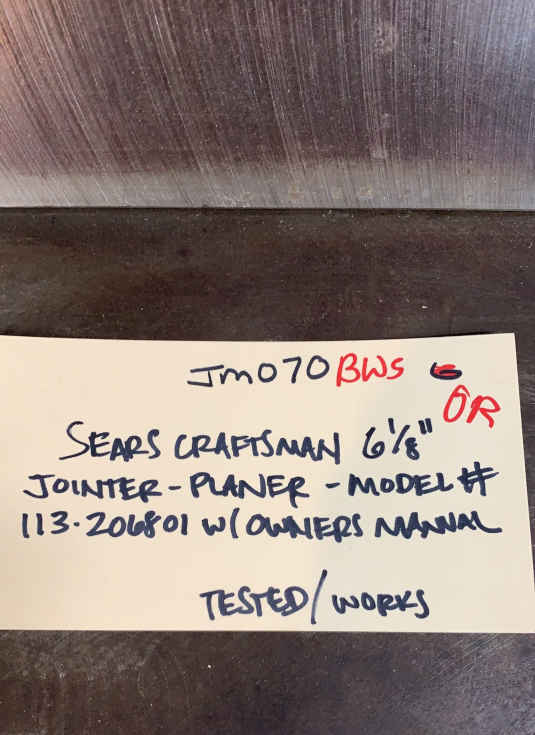 JM070 BWS
OR
SEARS CRAFTSMAN 6 1/8"
JOINTER-PLANER - MODEL #
113.206801 W/ OWNERS MANUAL
TESTED/WORKS